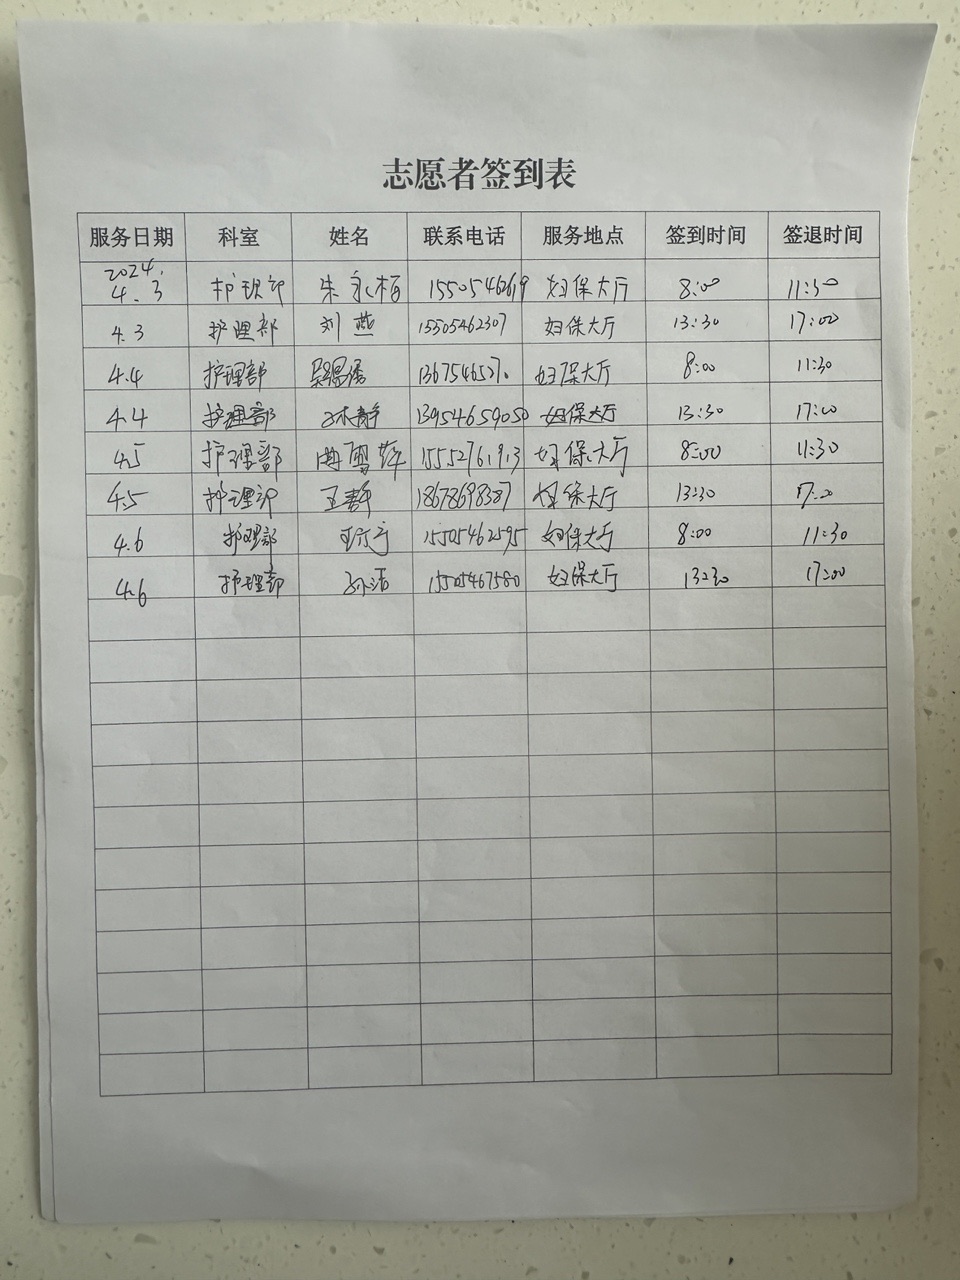 志愿者签到表
服务日期 科室 姓名 联系电话 服务地点 签到时间 签退时间
2024.
4.3 护理部 朱永梅 15505462619 妇保大厅 8:00 11:30
4.3 护理部 刘燕 15505462307 妇保大厅 13:30 17:00
4.4 护理部 妇保大厅 8:00 11:30
4.4 护理部 孙静 13954659050 妇保大厅 13:30 17:00
4.5 护理部 15552761913 妇保大厅 8:00 11:30
4.5 护理部 王静 18678698387 妇保大厅 13:30 17:00
4.6 护理部 15505462595 妇保大厅 8:00 11:30
4.6 护理部 孙洁 15505467580 妇保大厅 13:30 17:00